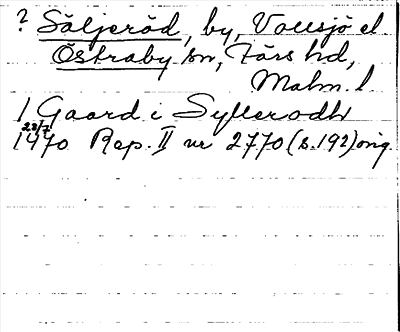 ? Säljeröd, by, Vollsjö el.
Östraby sn, Färs hd,
Malm. l.
1 Gaard i Syllerodh
22/7
1470 Rep. II nr 2770 (s. 192) orig.